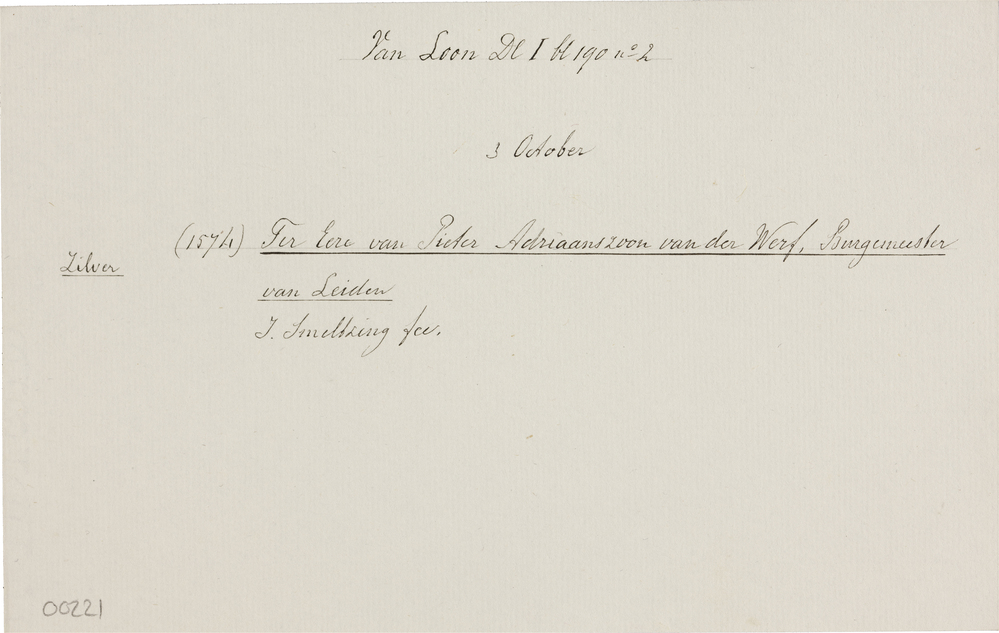 Van Loon Dl I bl 190 no 2
3 October
(1574) Ter Eere van Pieter Adriaanszoon van der Werf, Burgemeester
Zilver
van Leiden
J. Smeltzing fec.
00221